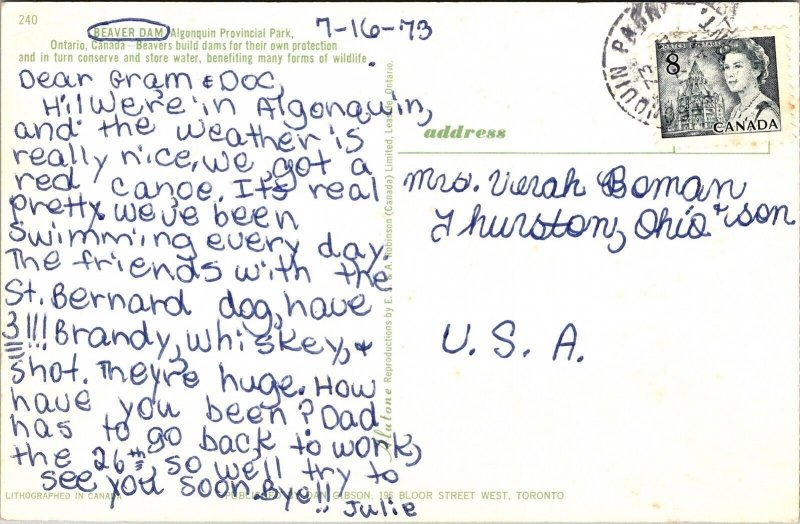 240
BEAVER DAM, Algonquin Provincial Park,
Ontario, Canada—Beavers build dams for their own protection
and in turn conserve and store water, benefiting many forms of wildlife.
7-16-73
Dear Gram & Doc,
Hi! We're in Algonquin,
and the weather is
really nice, we got a
red canoe. It's real
pretty. we've been
swimming every day.
The friends with the
St. Bernard dog, have
3!!! Brandy, whiskey, &
shot. They're huge. How
have you been? Dad
has to go back to work,
the 26th, so we'll try to
see you soon. Bye!!
Julie
LITHOGRAPHED IN CANADA
PUBLISHED BY DAN GIBSON, 196 BLOOR STREET WEST, TORONTO
Alutone Reproductions by E. C. & A. Robinson (Canada) Limited, Leaside, Ontario.
address
Mrs. Verah Boman & son
Thurston, Ohio
U. S. A.
POSTES POSTAGE
8
CANADA